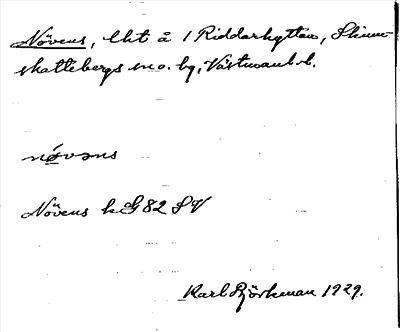 Növens, lht å 1 Riddarhyttan, Skinn-
skattebergs sn o. bg, Västmanl. l.
nøvəns
Növens k G 82 SV
Karl Björkman 1929.